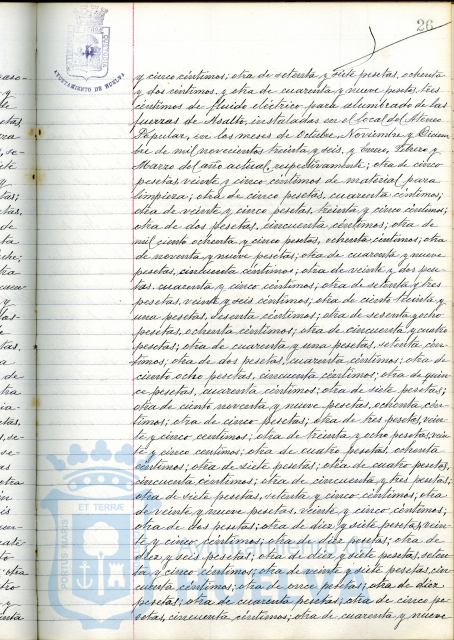 26
AYUNTAMIENTO DE HUELVA
y cinco céntimos; otra de setenta y siete pesetas, ochenta
y dos céntimos y otra de cuarenta y nueve pesetas, tres
céntimos de fluido eléctrico para alumbrado de las
fuerzas de Asalto, instaladas en el local del Ateneo
Popular, en los meses de Octubre, Noviembre y Diciem-
bre de mil novecientos treinta y seis, y Enero, Febrero y
Marzo del año actual, respectivamente; otra de cinco
pesetas, veinte y cinco céntimos de material para
limpieza; otra de cinco pesetas, cuarenta céntimos;
otra de veinte y cinco pesetas, treinta y cinco céntimos;
otra de dos pesetas, cincuenta céntimos; otra de
mil ciento ochenta y cinco pesetas, ochenta céntimos; otra
de noventa y nueve pesetas; otra de cuarenta y nueve
pesetas, cincuenta céntimos; otra de veinte y dos pese-
tas, cuarenta y cinco céntimos; otra de setenta y tres
pesetas, veinte y seis céntimos; otra de ciento treinta y
una pesetas, sesenta céntimos; otra de sesenta y ocho
pesetas, ochenta céntimos; otra de cincuenta y cuatro
pesetas; otra de cuarenta y una pesetas, setenta cén-
timos; otra de dos pesetas, cuarenta céntimos; otra de
ciento ocho pesetas, cincuenta céntimos; otra de quin-
ce pesetas, cuarenta céntimos; otra de siete pesetas;
otra de ciento noventa y nueve pesetas, ochenta cén-
timos; otra de cinco pesetas; otra de tres pesetas, vein-
te y cinco céntimos; otra de treinta y ocho pesetas, vein-
te y cinco céntimos; otra de cuatro pesetas, ochenta
céntimos; otra de siete pesetas; otra de cuatro pesetas,
cincuenta céntimos; otra de cincuenta y tres pesetas;
otra de siete pesetas, setenta y cinco céntimos; otra
de veinte y nueve pesetas, veinte y cinco céntimos;
otra de dos pesetas; otra de diez y siete pesetas, vein-
te y cinco céntimos; otra de diez pesetas; otra de
diez y seis pesetas; otra de diez y siete pesetas, seten-
ta y cinco céntimos; otra de veinte y siete pesetas, cin-
cuenta céntimos; otra de once pesetas; otra de diez
pesetas; otra de cuarenta pesetas; otra de cinco pe-
setas, cincuenta céntimos; otra de cuarenta y nueve
PORTUS MARIS
ET TERRÆ